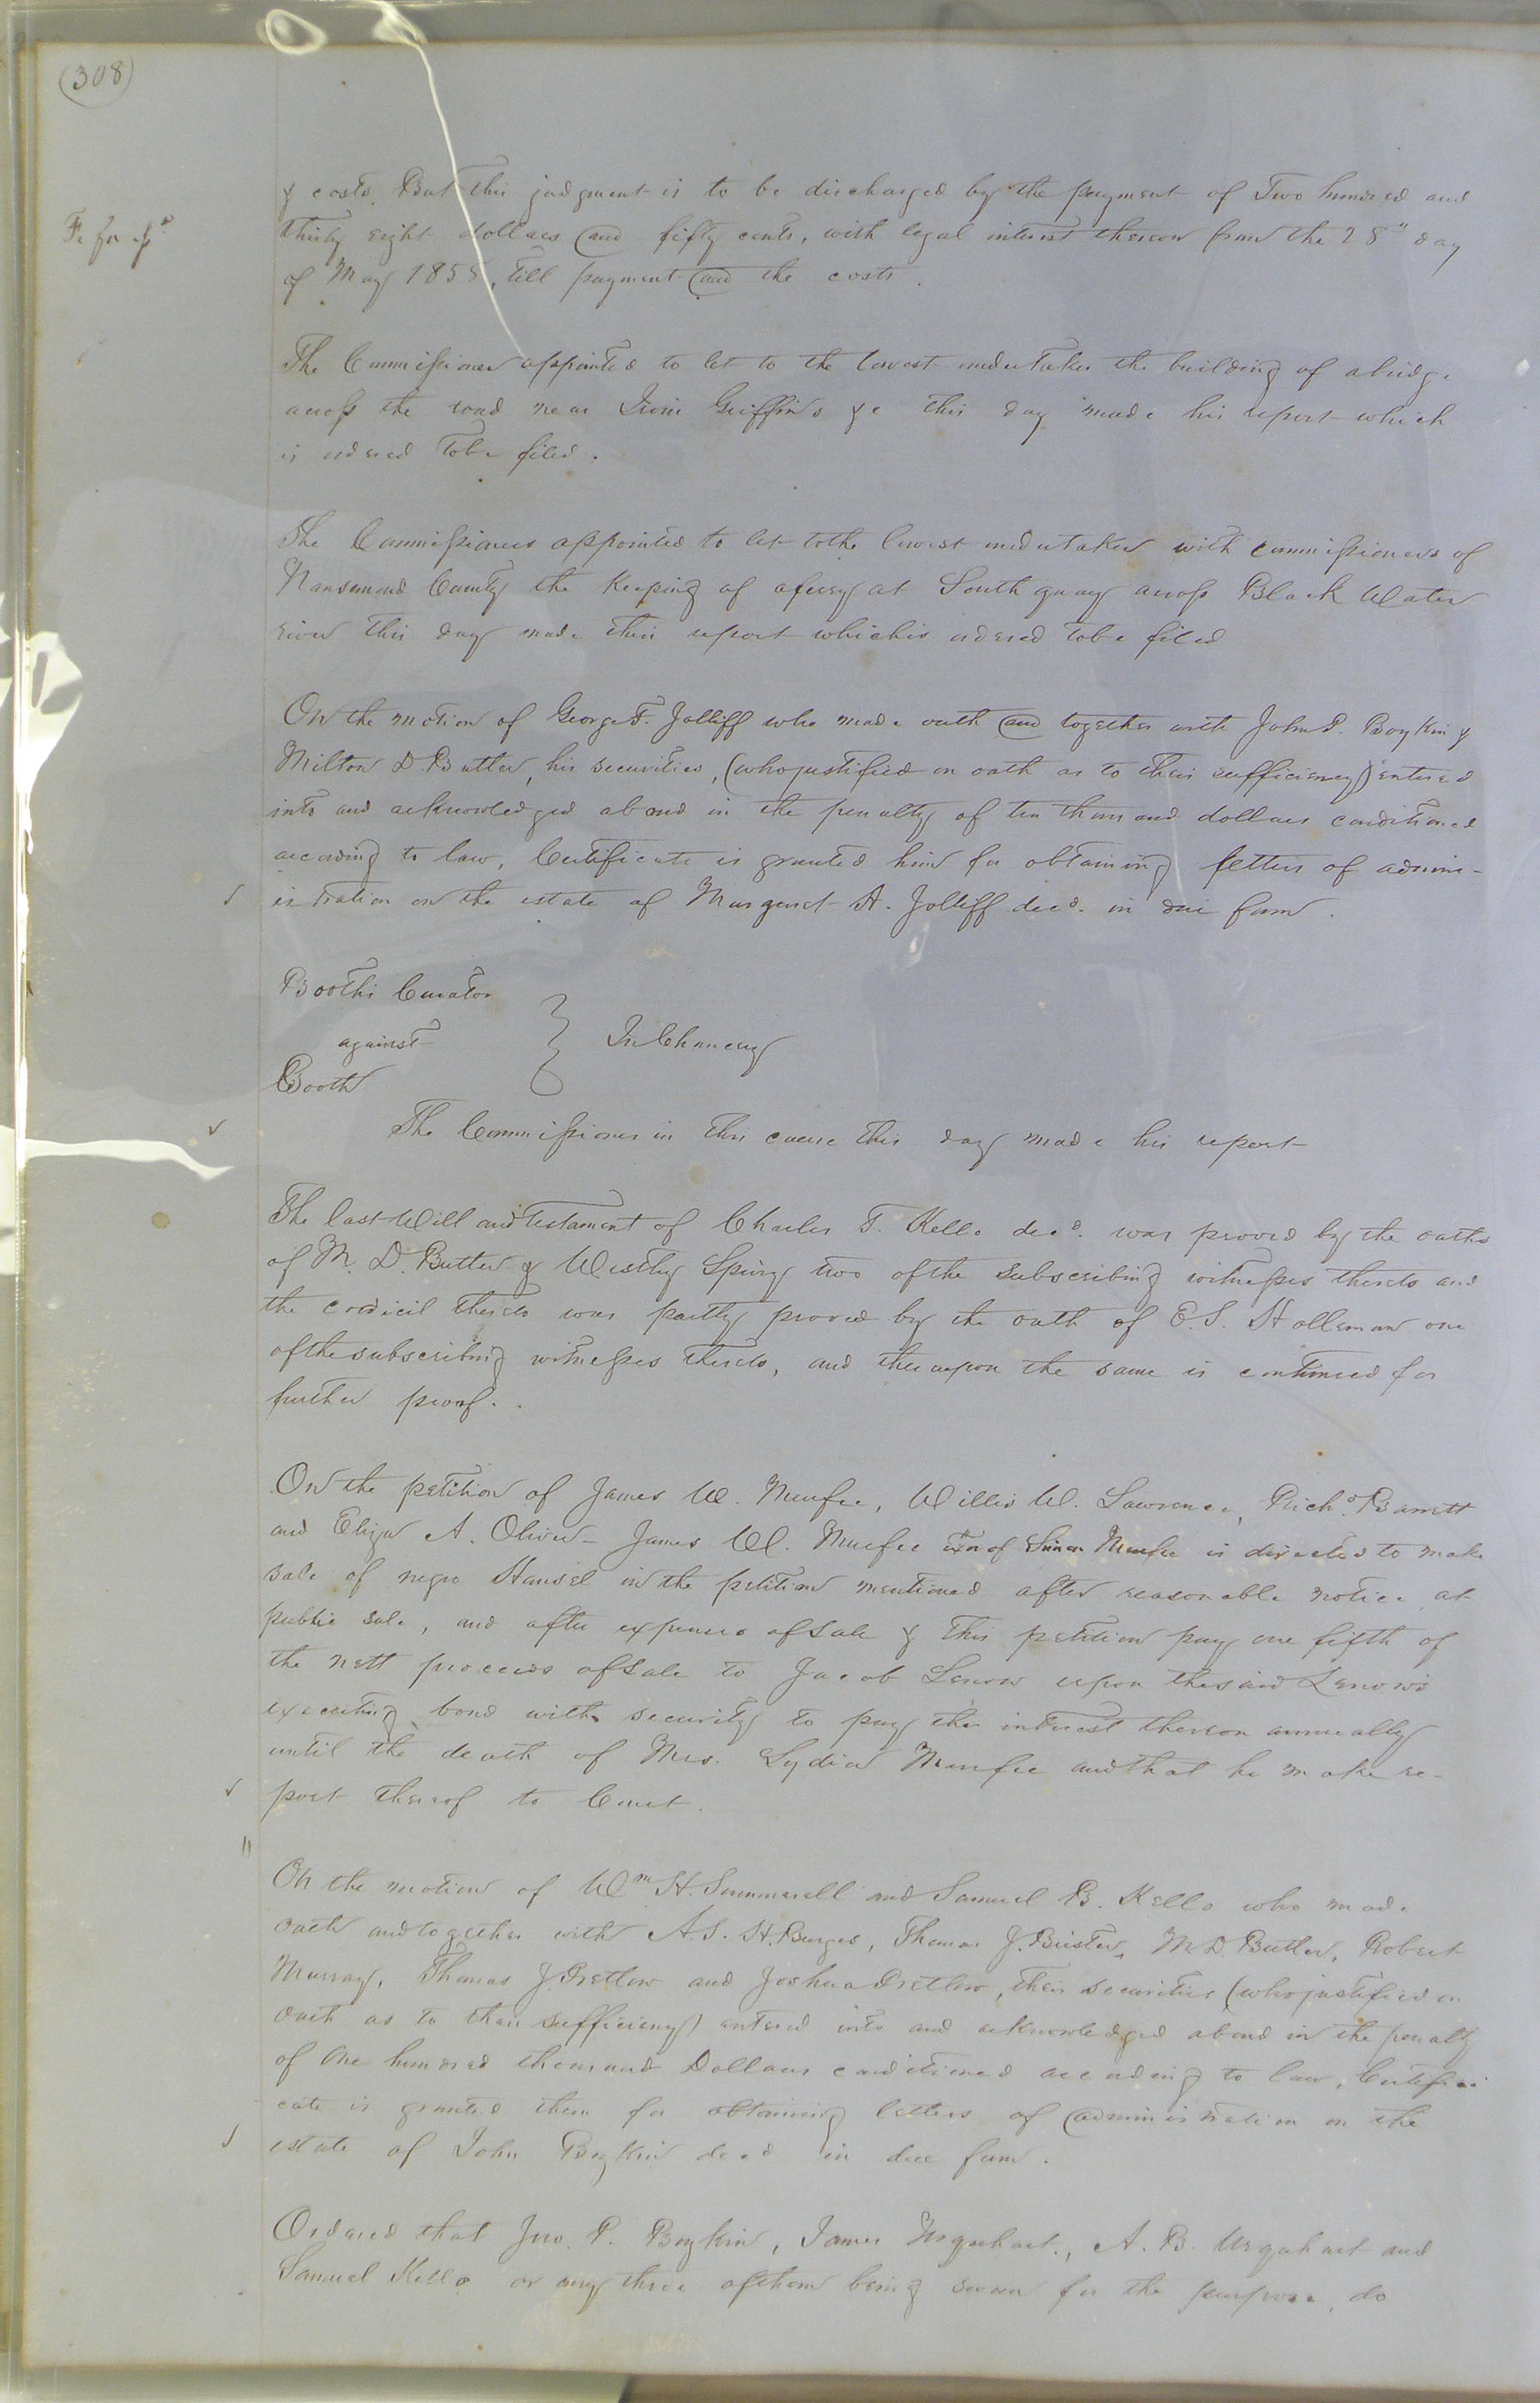 (308)
& costs. But this judgment is to be discharged by the payment of Two hundred and
Fi fa
thirty eight dollars and fifty cents, with legal interest thereon from the 28" day
of May 1855, till payment and the costs.
The Commissioner appointed to let to the lowest undertaker the building of a bridge
across the road near Griffins &c this day made his report which
is ordered to be filed.
The Commissioners appointed to let to the lowest undertaker with commissioners of
Nansemond County the Keeping of a ferry at South quay across Black Water
river this day made their report which is ordered to be filed
On the motion of George F. Jolliff who made oath and together with John P. Boykin &
Milton D. Butler, his securities, (who justified on oath as to their sufficiency) entered
into and acknowledged a bond in the penalty of ten thousand dollars conditioned
according to law, Certificate is granted him for obtaining letters of admin-
istration on the estate of Margaret A. Jolliff decd. in due form.
Booth's Curator
against } In Chancery
Booth
The Commissioner in this cause this day made his report
The last Will and testament of Charles F. Kello decd. was proved by the oaths
of M. D. Butler & Westley Spivy two of the subscribing witnesses thereto and
the codicil thereto was partly proved by the oath of E. S. Holleman one
of the subscribing witnesses thereto, and thereupon the same is continued for
further proof.
On the petition of James W. Murfee, Willis W. Lawrence, Richd. Barrett
and Eliza A. Oliver - James W. Murfee Exr of Simon Murfee is directed to make
sale of negro Hansel in the petition mentioned after reasonable notice at
public sale, and after expenses of sale & this petition pay one fifth of
the nett proceeds of sale to Jacob Lenow upon the said Lenow's
executing bond with security to pay the interest thereon annually
until the death of Mrs. Lydia Murfee and that he make re-
port thereof to Court.
On the motion of Wm H. Summerell and Samuel B. Kello who made
oath and together with A. S. H. Burges, Thomas J. Brister, M. D. Butler, Robert
Murray, Thomas J. Pretlow and Joshua Pretlow, their securities (who justified on
oath as to their sufficiency) entered into and acknowledged a bond in the penalty
of One hundred thousand Dollars conditioned according to law, Certifi
cate is granted them for obtaining letters of administration on the
estate of John Boykin decd in due form.
Ordered that Jno. P. Boykin, James Urquhart, A. B. Urquhart and
Samuel Kello or any three of them being sworn for the purpose, do